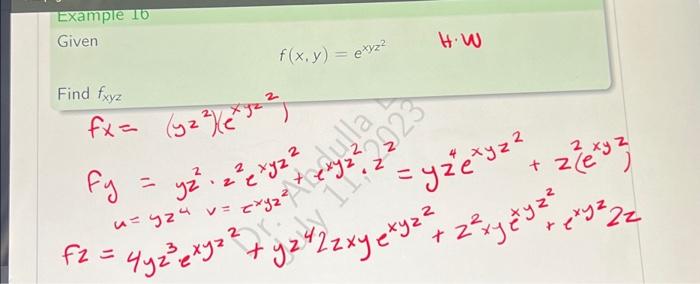 Example 16
Given
f(x, y) = e^{xyz^2}
H.W
Find f_{xyz}
fx = (yz^2)(e^{xyz^2})
fy = yz^2 · z^2 e^{xyz^2} + e^{xyz^2} · z^2 = yz^4 e^{xyz^2} + z^2(e^{xyz})
u = yz^4 v = e^{xyz^2}
fz = 4yz^3 e^{xyz^2} + yz^4 2zxy e^{xyz^2} + z^2 xy e^{xyz^2} + e^{xyz} 2z
Dr. Abdulla
July 11, 2023